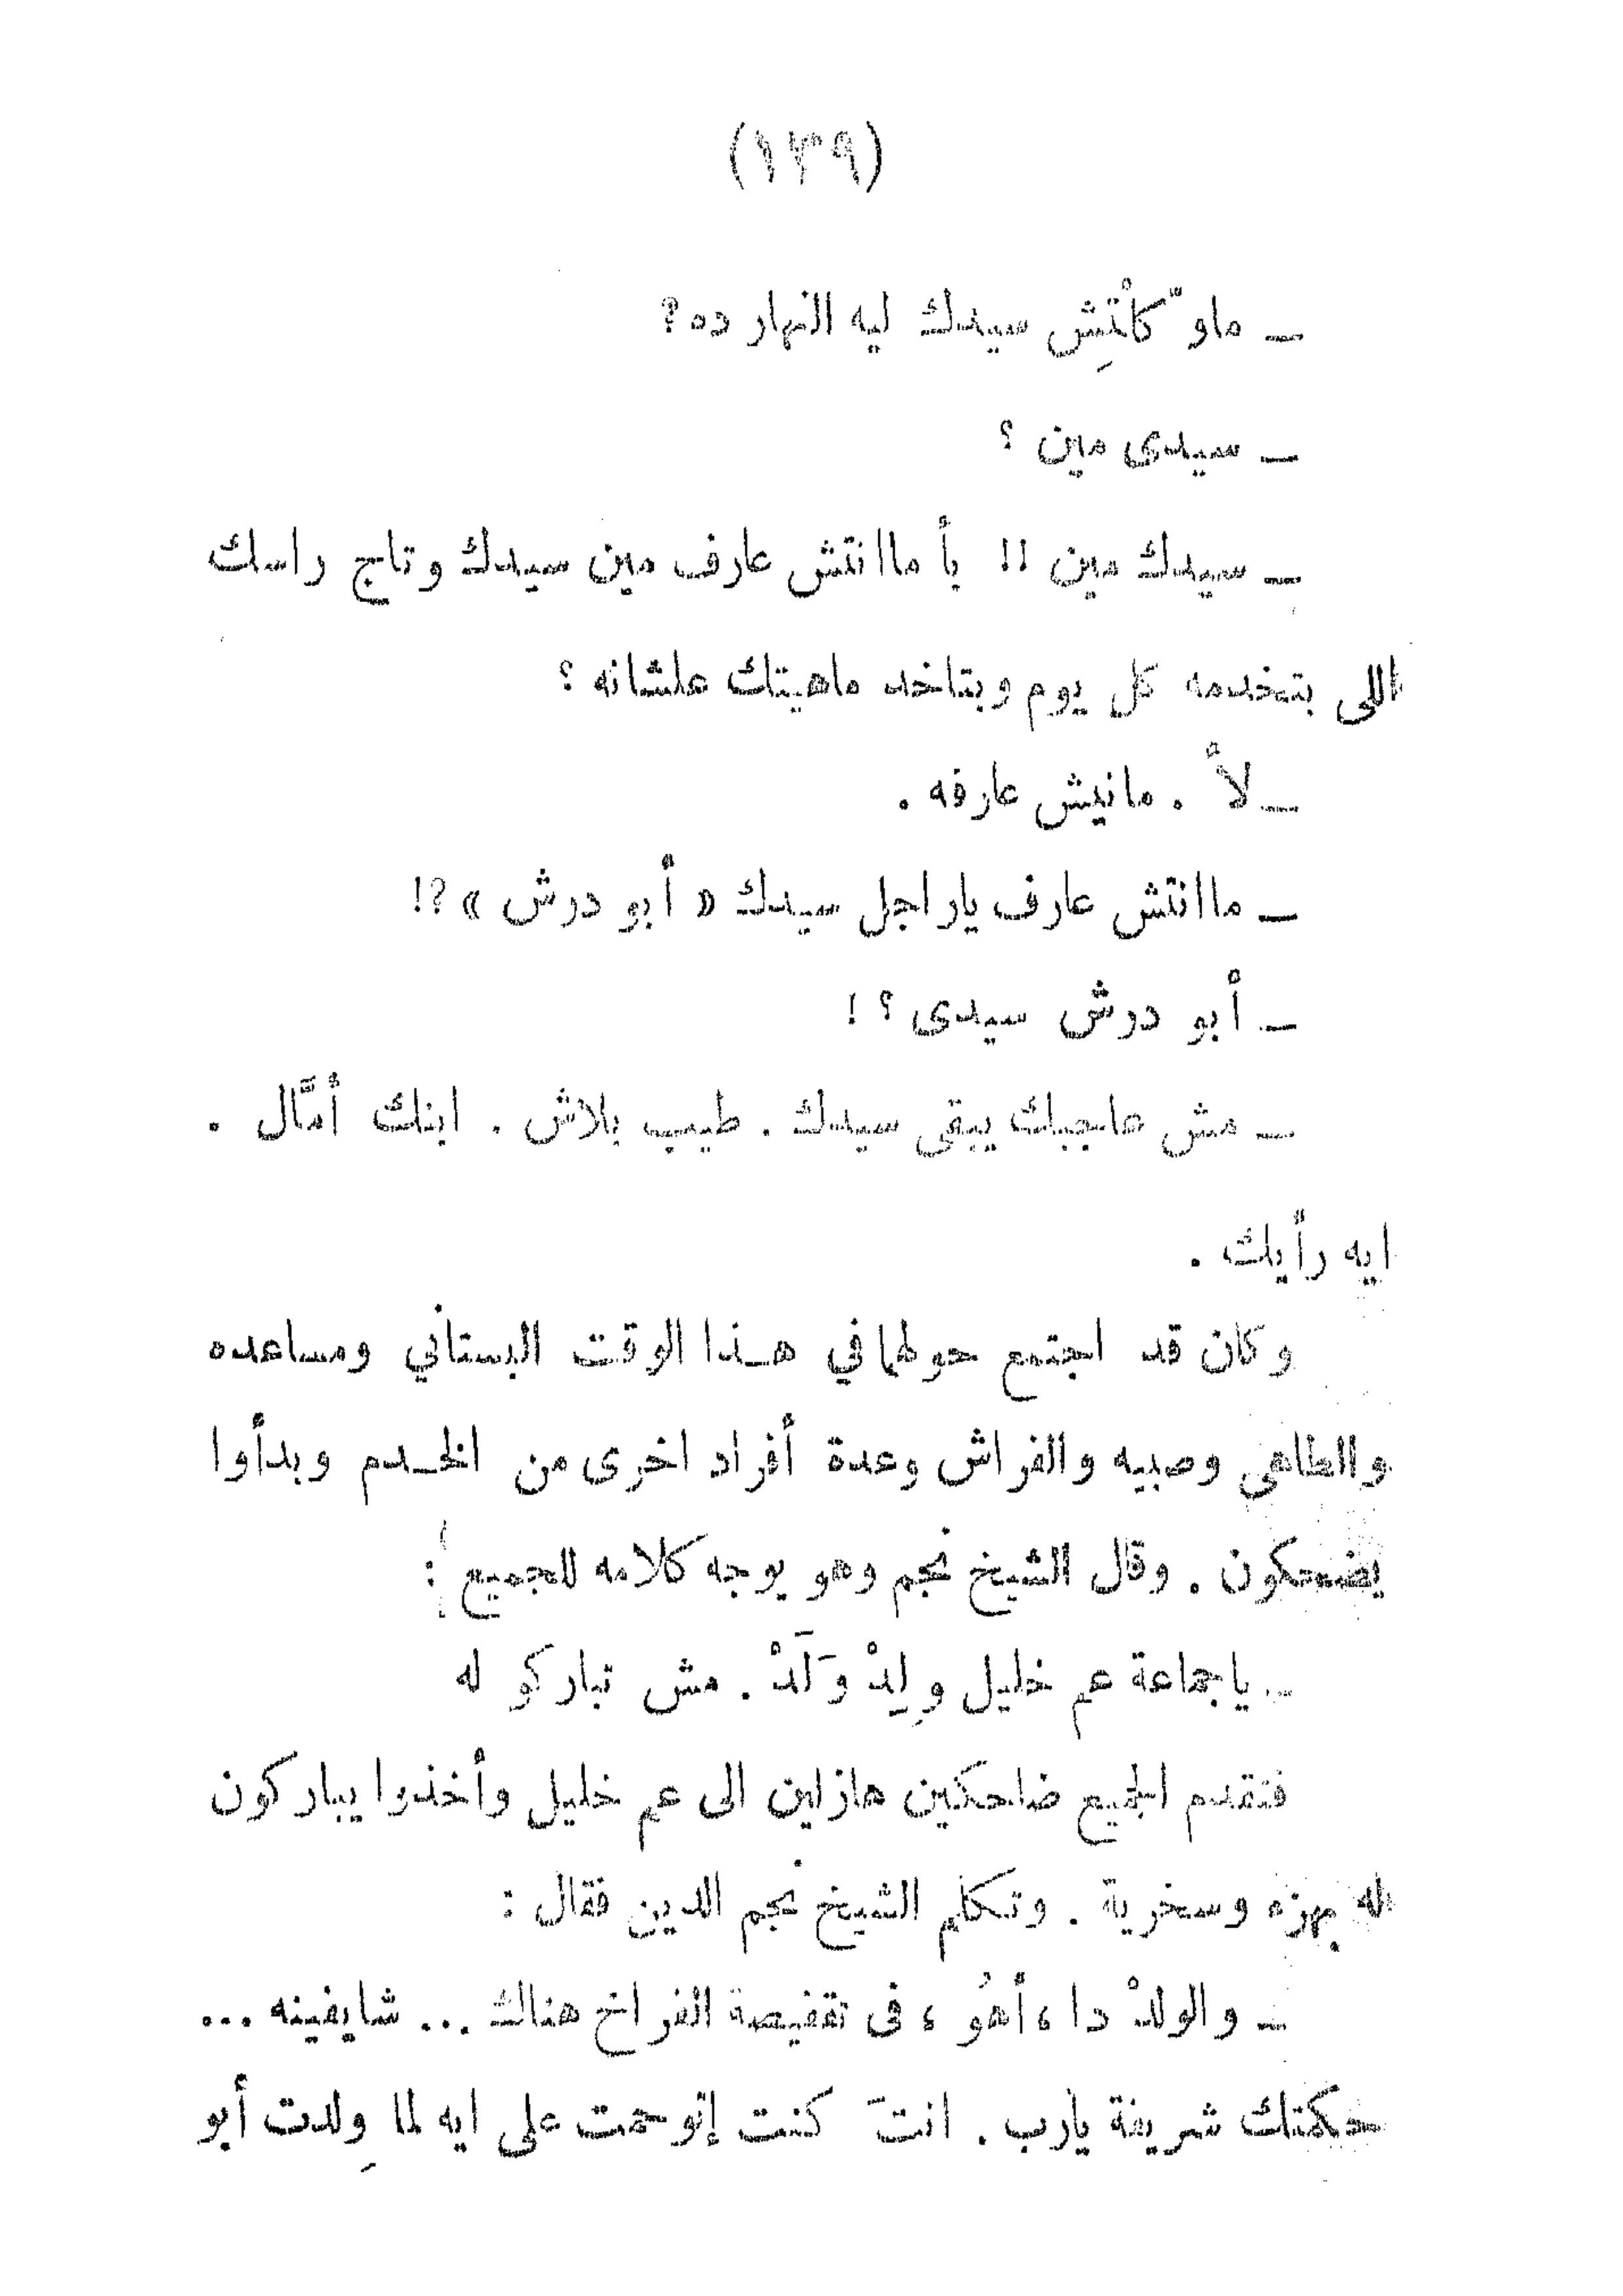 (١٣٩)
ـ ماوّكلْتِش سيدك ليه النهار ده؟
ـ سيدى مين ؟
ـ سيدك مين !! بأ ماانتش عارف مين سيدك وتاج راسك
اللى بتخدمه كل يوم وبتاخد ماهيتك علشانه ؟
ـ لأ . مانيش عارفه .
ـ ماانتش عارف ياراجل سيدك « أبو درش »؟!
ـ أبو درش سيدى ؟ !
ـ مش عاجبك يبقى سيدك . طيب بلاش . ابنك أمَّال .
ايه رأيك .
وكان قد اجتمع حولهما في هـذا الوقت البستاني ومساعده
والطاهى وصبيه والفراش وعدة أفراد اخرى من الخـدم وبدأوا
يضحكون . وقال الشيخ نجم وهو يوجه كلامه للجميع :
ـ ياجماعة عم خليل وِلِدْ وَلَدْ . مش تباركو له
فتقدم الجميع ضاحكين هازلين الى عم خليل وأخذوا يباركون
له بهزء وسخرية . وتكلم الشيخ نجم الدين فقال :
ـ والولدْ دا ، أهُو ، فى تقفيصة الفراخ هناك ... شايفينه ...
حكمتك شريفة يارب . انتَ كنت إتوحمت على ايه لما وِلدت أبو